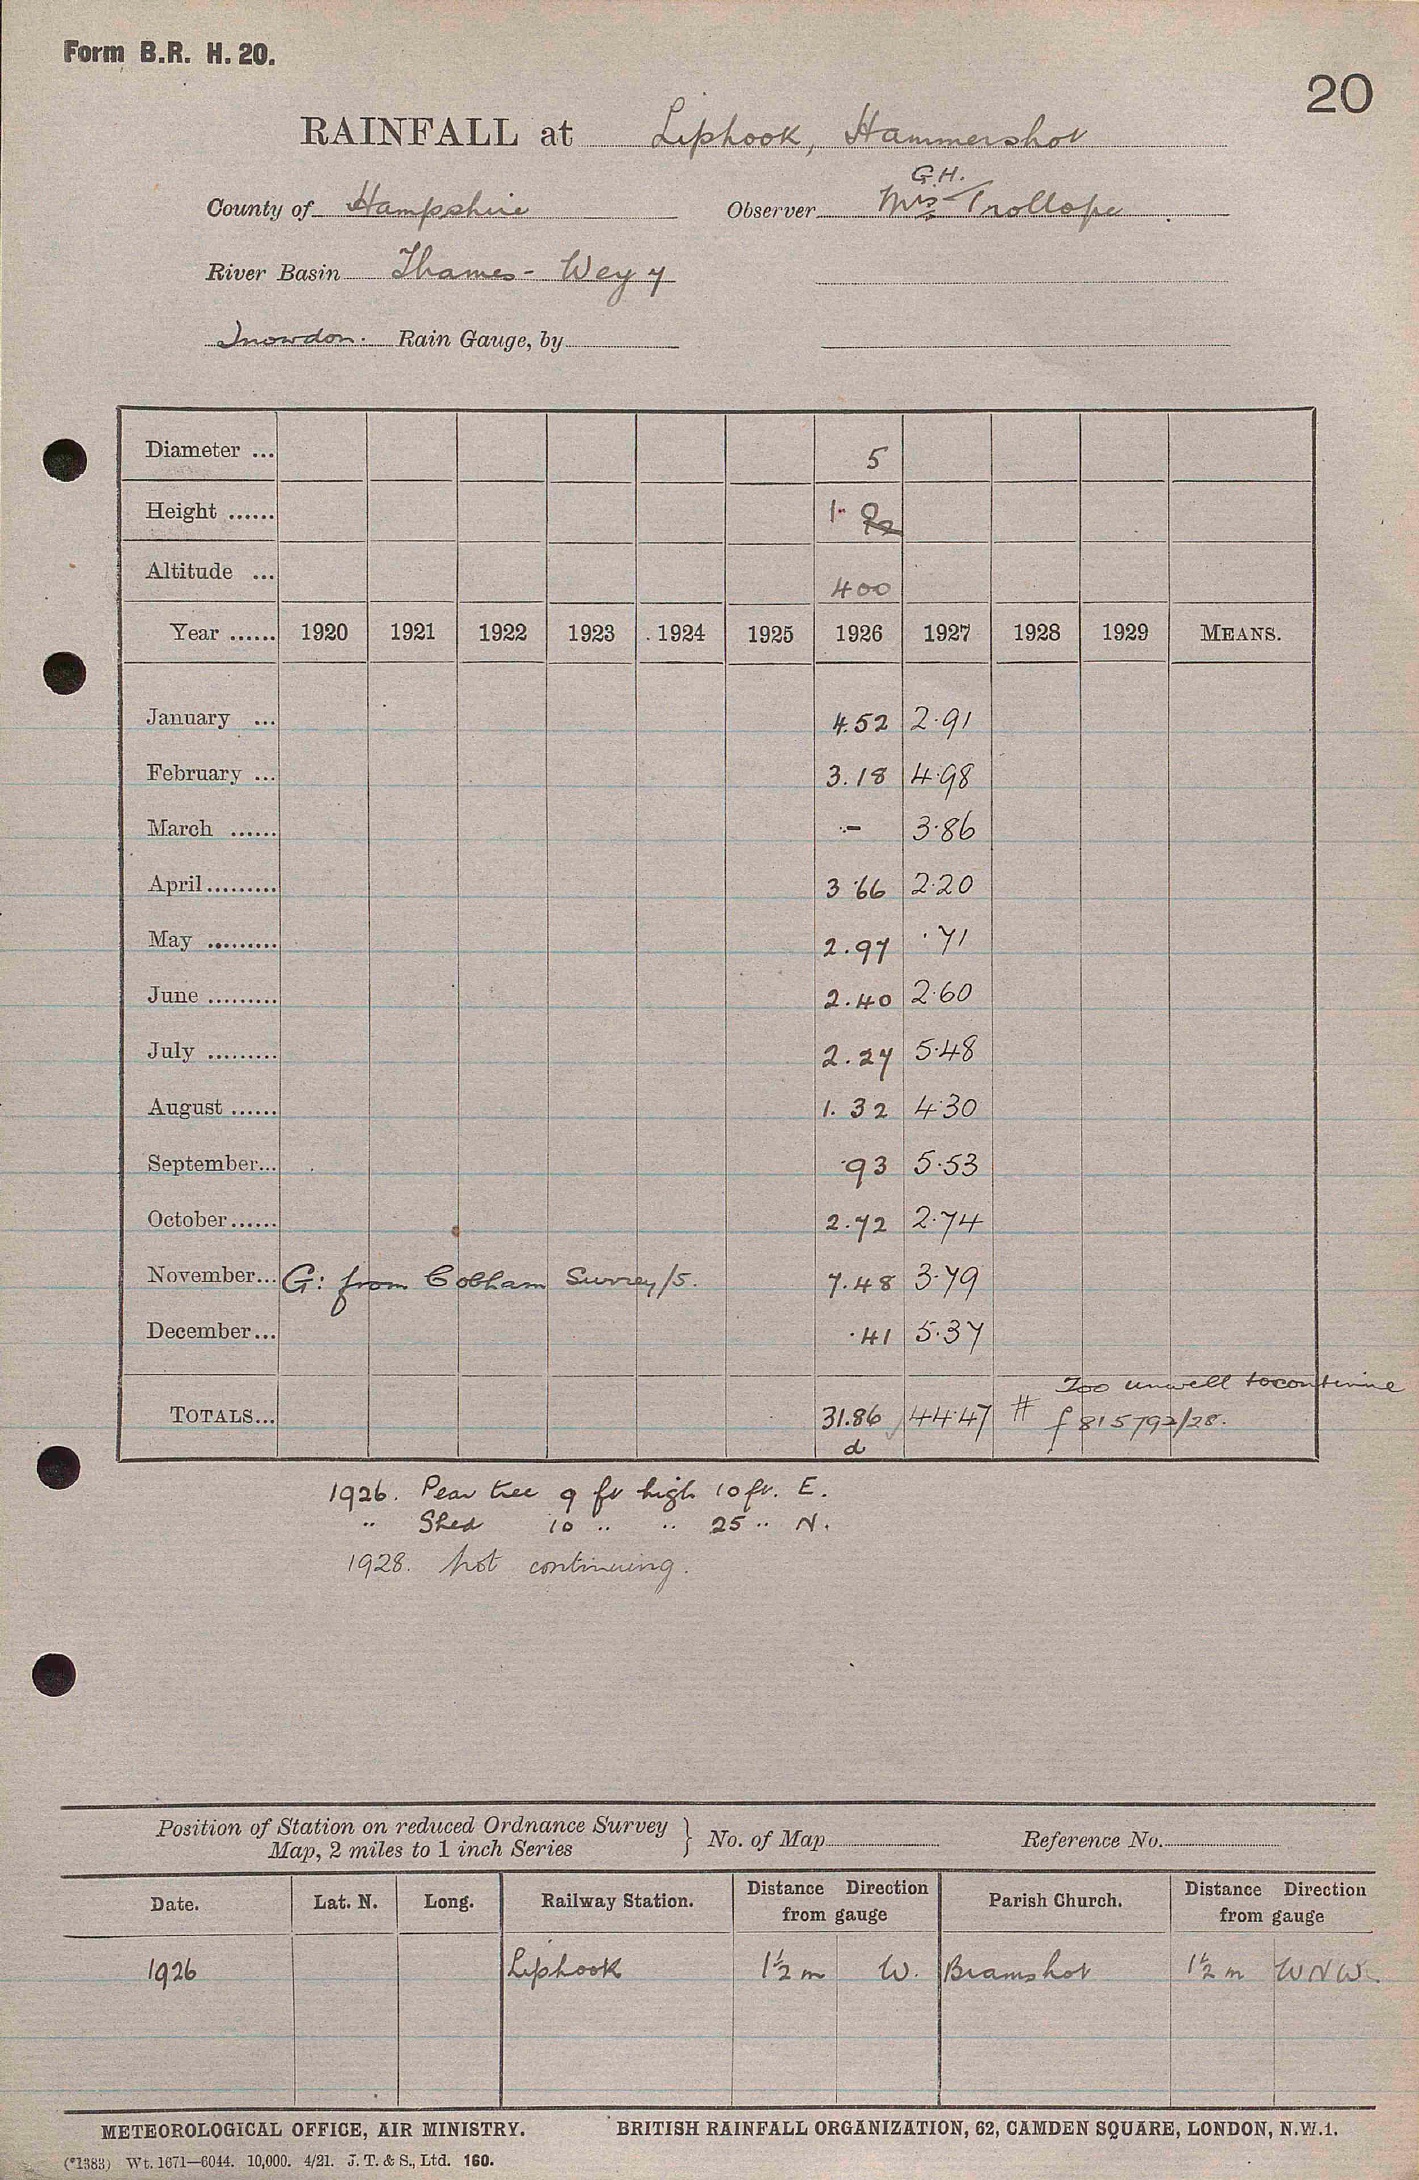 Form B.R. H. 20.
20
RAINFALL at Liphook, Hammershot
G.H.
County of Hampshire Observer Mrs Trollope
River Basin Thames - Wey
Snowdon. Rain Gauge, by
Diameter ... 5
Height ...... 1.
Altitude ... 400
Year ...... 1920 1921 1922 1923 1924 1925 1926 1927 1928 1929 MEANS.
January ... 4.52 2.91
February ... 3.18 4.98
March ...... .- 3.86
April ......... 3.66 2.20
May ......... 2.97 .71
June ......... 2.40 2.60
July ......... 2.27 5.48
August ...... 1.32 4.30
September... .93 5.53
October...... 2.72 2.74
November... G: from Cobham Surrey/5. 7.48 3.79
December... .41 5.37
Too unwell to continue
TOTALS... 31.86 44.47 # f 815792/28.
d
1926. Pear tree 9 ft high 10 ft. E.
" Shed 10 " " 25 " N.
1928. Not continuing.
Position of Station on reduced Ordnance Survey
Map, 2 miles to 1 inch Series } No. of Map Reference No.
Date. Lat. N. Long. Railway Station. Distance Direction from gauge Parish Church. Distance Direction from gauge
1926 Liphook 1½ m W. Bramshot 1½ m WNW.
METEOROLOGICAL OFFICE, AIR MINISTRY. BRITISH RAINFALL ORGANIZATION, 62, CAMDEN SQUARE, LONDON, N.W.1.
(*1383) Wt. 1671—6044. 10,000. 4/21. J. T. & S., Ltd. 160.